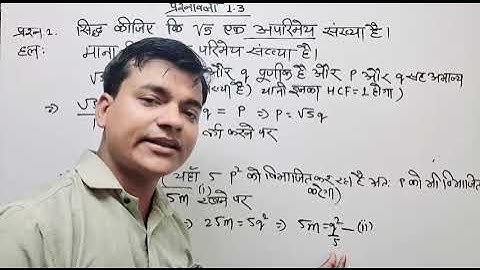 प्रश्नावली 1.3
प्रश्न 1. सिद्ध कीजिए कि √5 एक अपरिमेय संख्या है।
हल: माना परिमेय संख्या है।
√5 और q पूर्णांक है और P और q सह अभाज्य
संख्या है) यानी इनका HCF=1 होगा)
⇒ √5 q = P ⇒ P = √5q
करने पर
(यहाँ 5 P² को विभाजित कर रहा है अतः P को भी विभाजित
करेगा)
5m रखने पर (i)
⇒ 25m = 5q² ⇒ 5m = q²/5 —(ii)